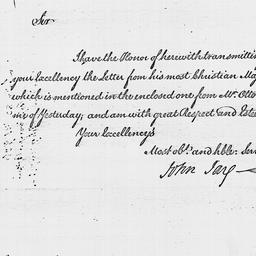 Sir
I have the Honor of herewith transmittin
your Excellency the Letter from his most Christian Maj
which is mentioned in the enclosed one from Mr. Otto
me of Yesterday; and am with great Respect and Estee
Your Excellency's
Most obt. and hble: Serv
John Jay